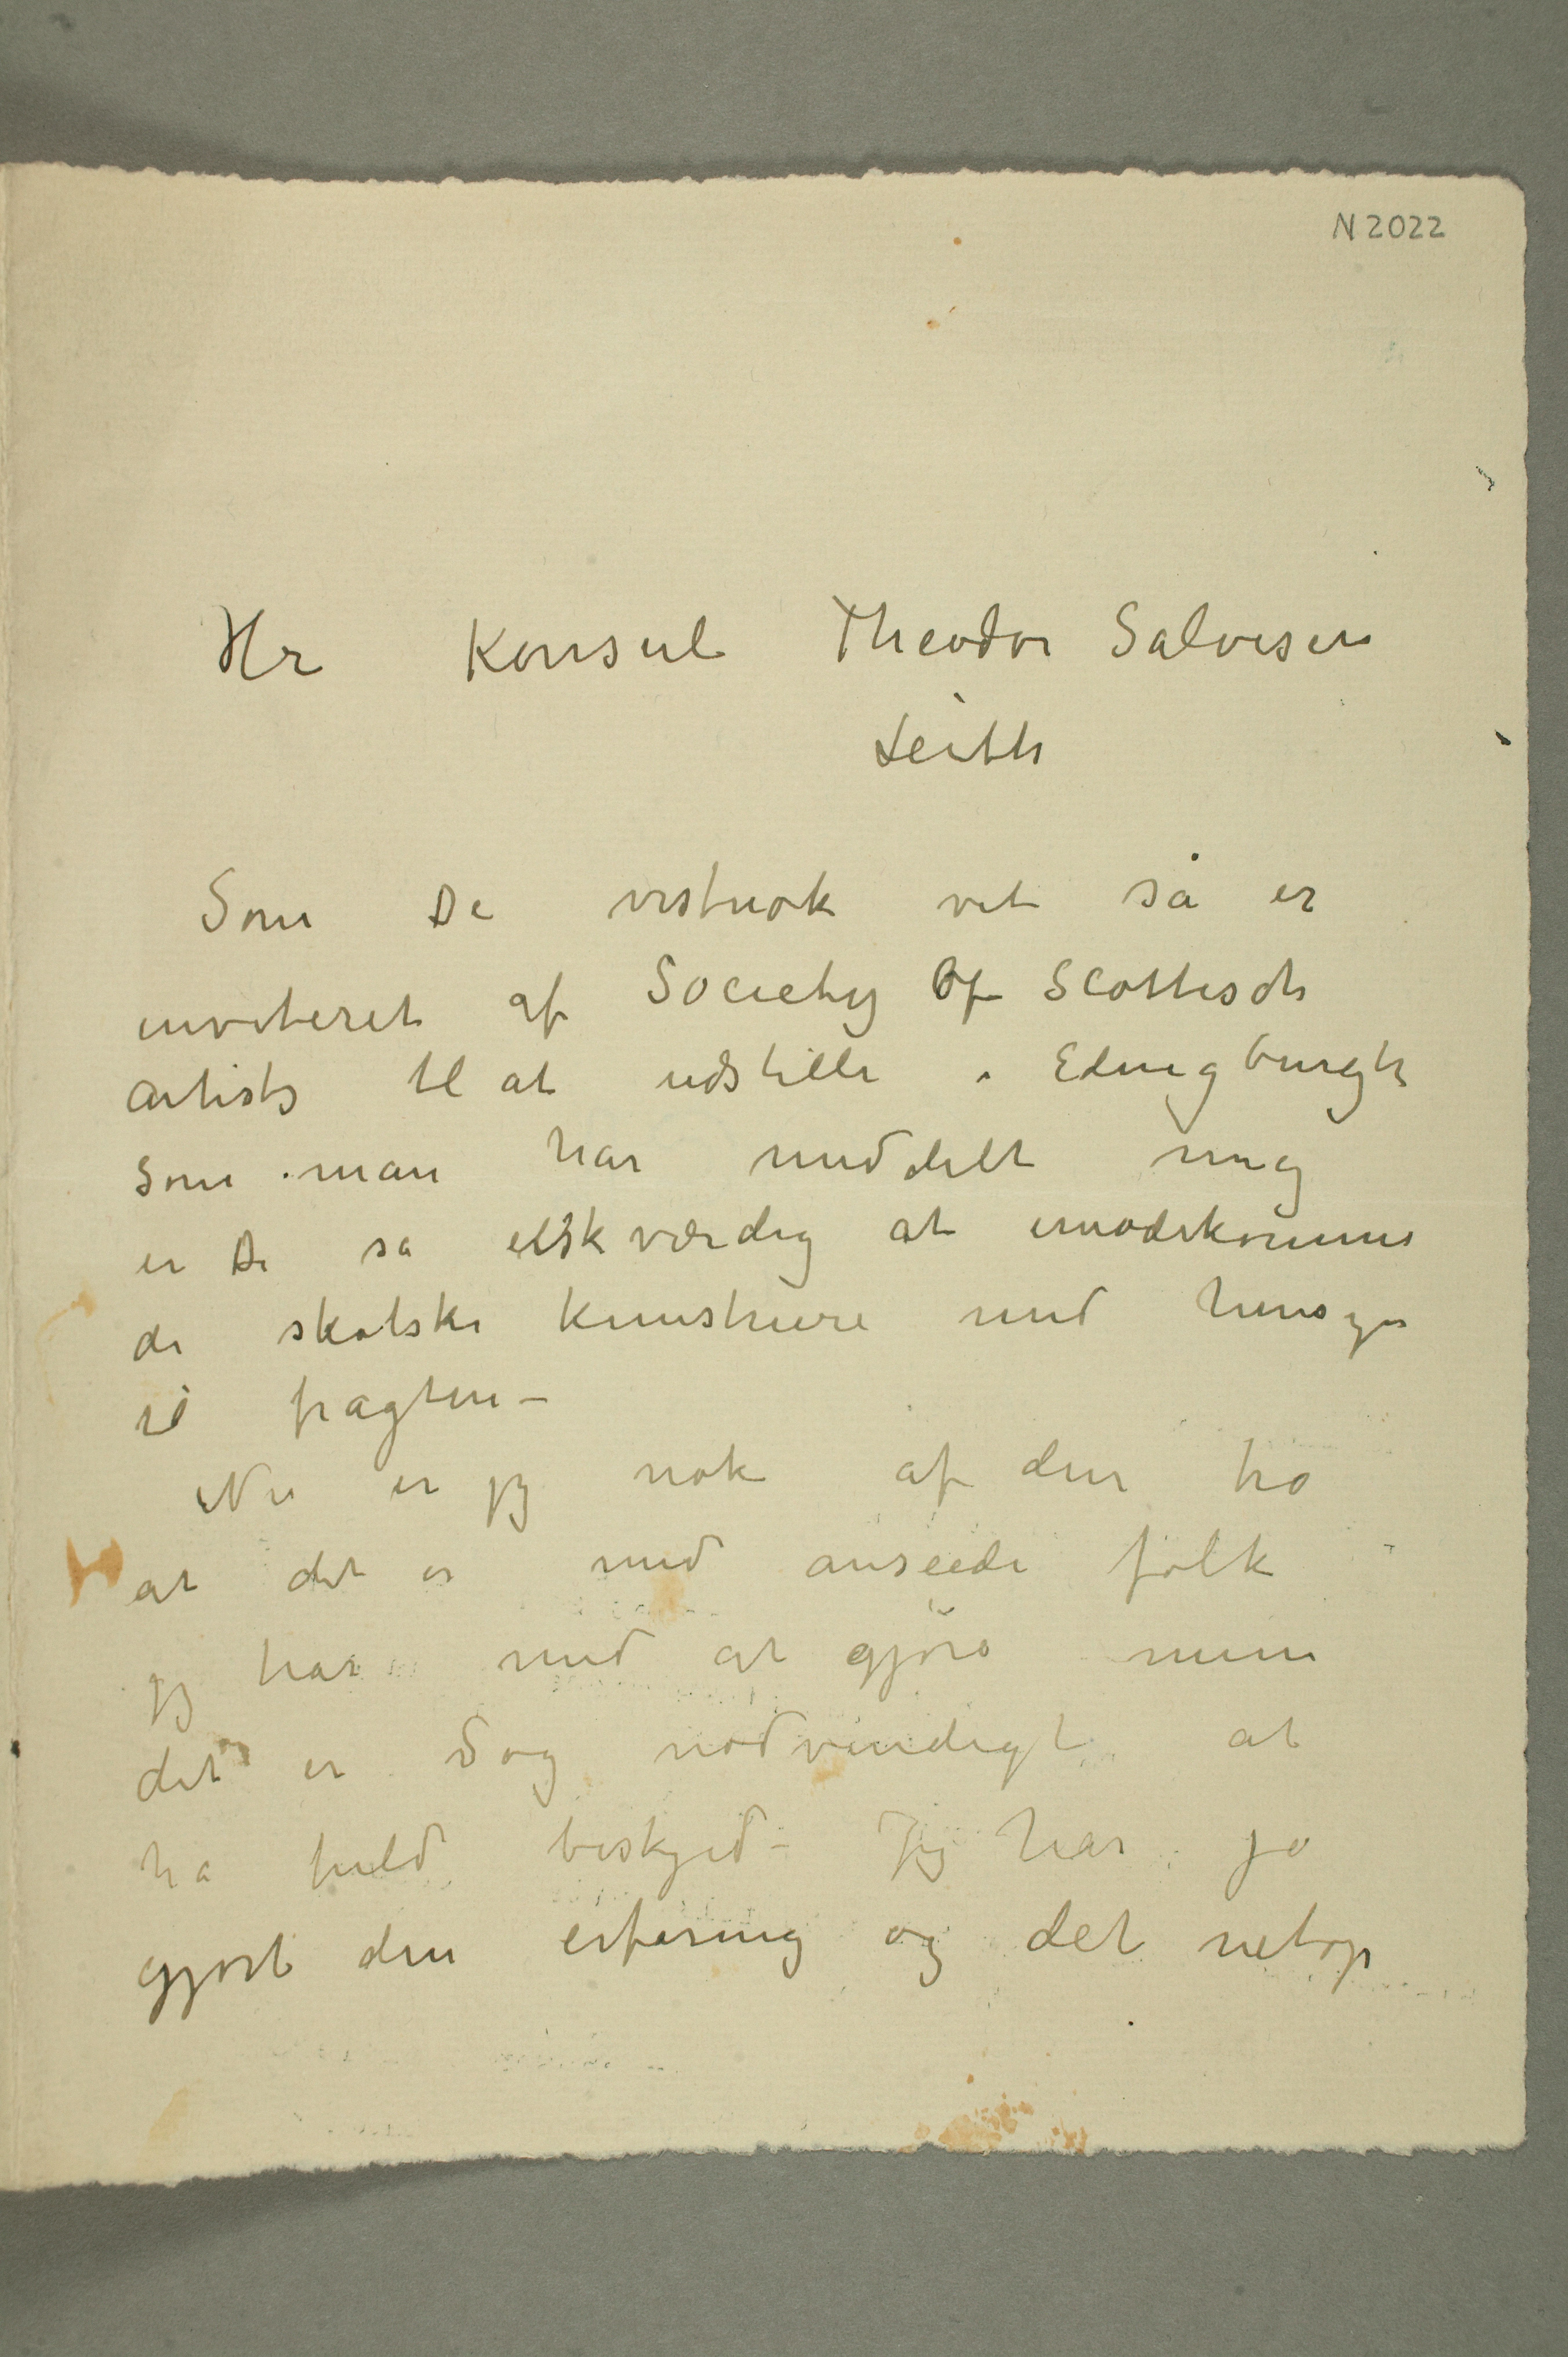 N 2022
Hr Konsul Theodor Salvesen
Leith
Som De vistnok vet så er
inviteret af Society Of Scottisch
artists til at udstille i Edingburgh
Som man har meddelt mig
er De så elskværdig at imødekomme
de skotske kunstnere med hensyn
til fragten –
Nu er jeg nok af den tro
at det er med anseede folk
jeg har med at gjöre men
det er dog nødvendigt at
ha fuld beskjed – Jeg har jo
gjort den erfaring og det netop